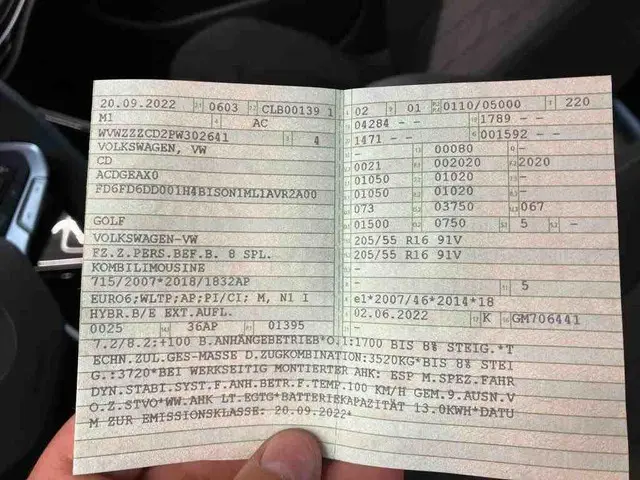 20.09.2022 0603 CLB00139 1
M1 AC
WVWZZZCD2PW302641 4
VOLKSWAGEN, VW
CD
ACDGEAX0
FD6FD6DD001H4B1SON1ML1AVR2A00
GOLF
VOLKSWAGEN-VW
FZ.Z.PERS.BEF.B. 8 SPL.
KOMBILIMOUSINE
715/2007*2018/1832AP
EURO6;WLTP;AP;PI/CI; M, N1 I
HYBR.B/E EXT.AUFL.
0025 36AP 01395
02 01 0110/05000 220
04284 - - 1789 - -
1471 - - 001592 - -
- 00080 -
0021 002020 2020
01050 01020 -
01050 01020 -
073 03750 067
01500 0750 5 -
205/55 R16 91V
205/55 R16 91V
-
- 5
e1*2007/46*2014*18
02.06.2022 K GM706441
7.2/8.2:+100 B.ANHÄNGEBETRIEB*O.1:1700 BIS 8% STEIG.*T
ECHN.ZUL.GES-MASSE D.ZUGKOMBINATION:3520KG*BIS 8% STEI
G.:3720*BEI WERKSEITIG MONTIERTER AHK: ESP M.SPEZ.FAHR
DYN.STABI.SYST.F.ANH.BETR.F.TEMP.100 KM/H GEM.9.AUSN.V
O.Z.STVO*WW.AHK LT.EGTG*BATTERIEKAPAZITÄT 13.0KWH*DATU
M ZUR EMISSIONSKLASSE: 20.09.2022*